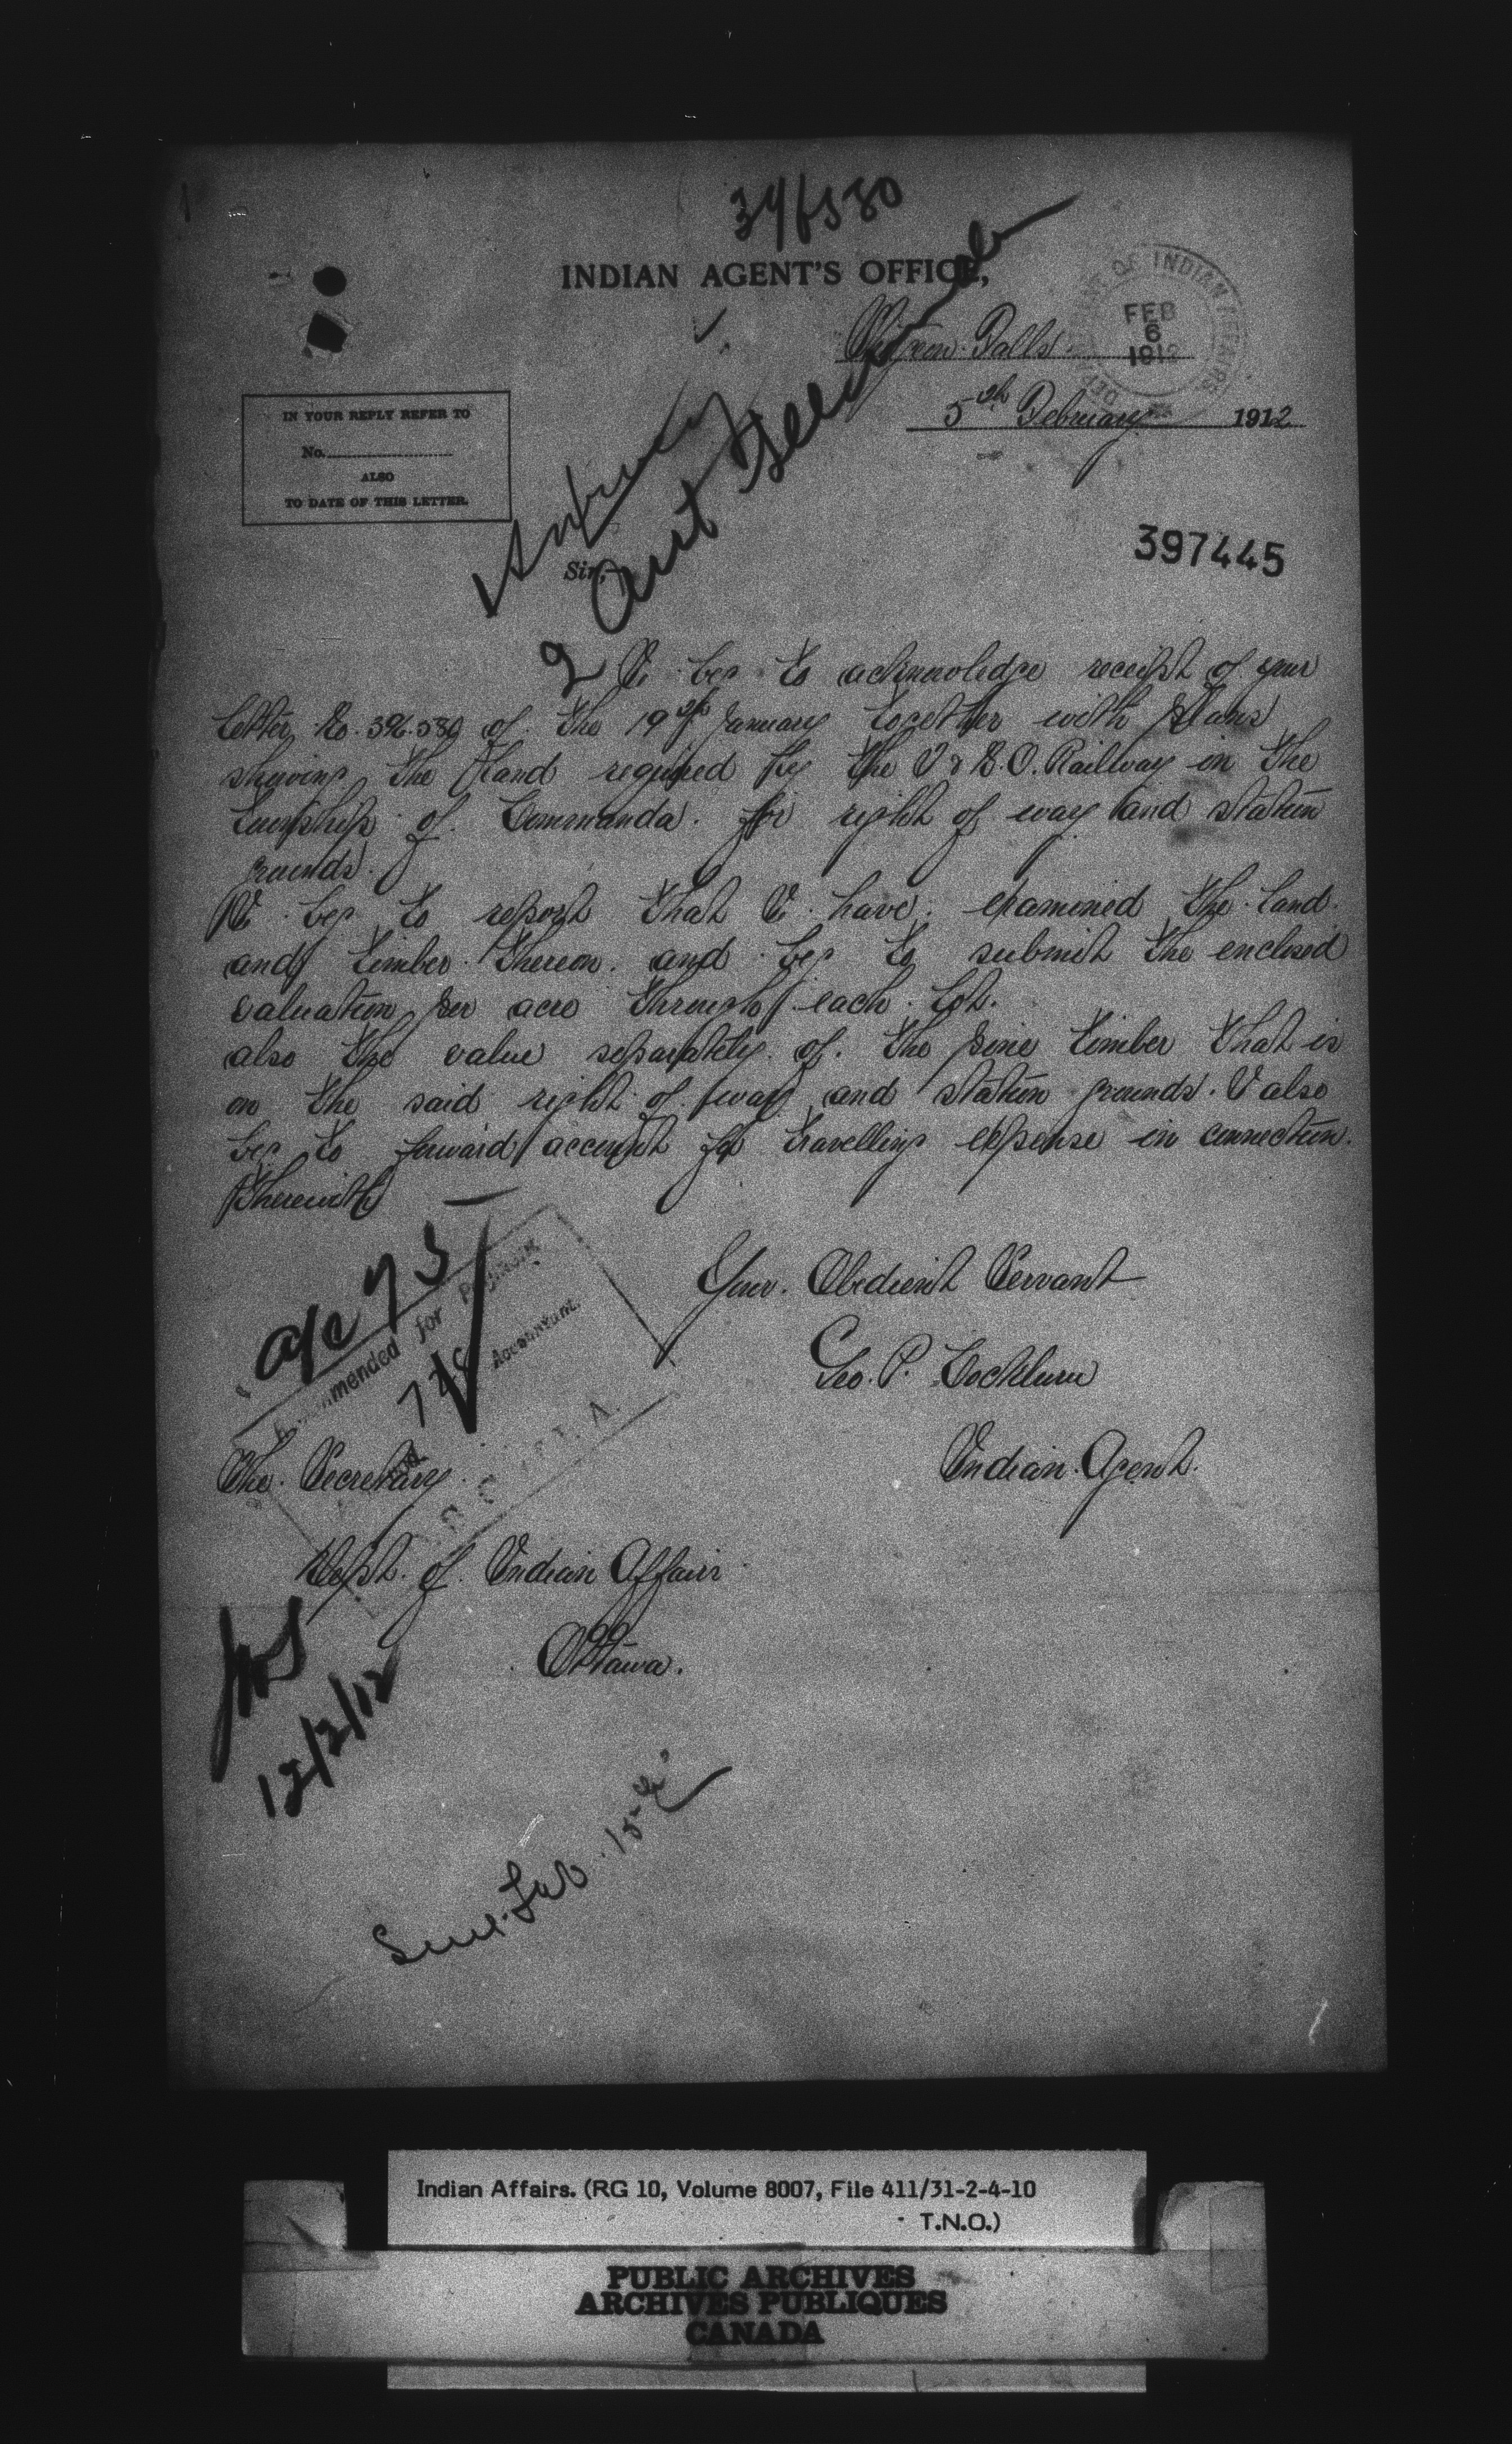 396580
INDIAN AGENT'S OFFICE,
Sturgeon Falls
DEPARTMENT OF INDIAN AFFAIRS
FEB
6
1912
5th February 1912
IN YOUR REPLY REFER TO
No.
ALSO
TO DATE OF THIS LETTER.
397445
Sir,
I beg to acknowledge receipt of your
letter No. 396.580 of the 19th January together with plans
shewing the land required by the T & N.O. Railway in the
township of Commanda for right of way and station
grounds.
I beg to report that I have examined the land
and timber thereon and beg to submit the enclosed
valuation per acre through each lot.
also the value separately of the pine timber that is
on the said right of way and station grounds. I also
beg to forward account for travelling expense in connection
therewith
Your Obedient Servant
Geo. P. Cockburn
Indian Agent.
a/c 73
Recommended for Payment
Accountant.
The Secretary
Dept. of Indian Affairs
Ottawa.
12/2/12
Indian Affairs. (RG 10, Volume 8007, File 411/31-2-4-10
T.N.O.)
PUBLIC ARCHIVES
ARCHIVES PUBLIQUES
CANADA